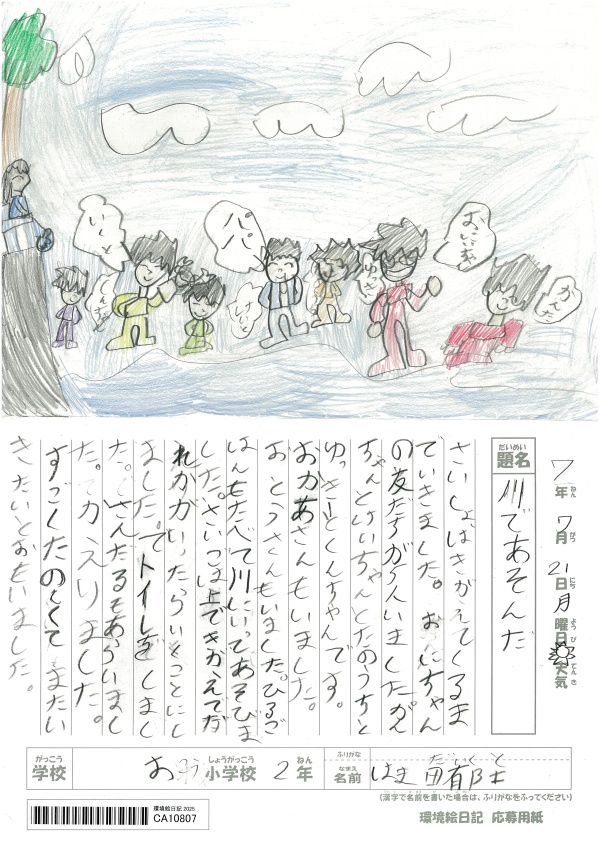 いくと
くんちゃん
パパ
けいと
ゆっきー
おにいちゃん
かんた
だいめい
題名
川であそんだ
7年 7月 21日 月曜日 天気
ねん がつ にち ようび てんき
さいしょはきがえてくるま
でいきました。おにいちゃん
の友だちが3人いましたかん
ちゃんとけいちゃんとたのうちと
ゆっきーとくんちゃんです。
おかあさんもいました。
おとうさんもいました。ひるご
はんをたべて川にいってあそびま
した。さいしょは上できがえてだ
れかがいったらいくことにし
ました。でトイレをしまし
た。さんだるもあらいまし
た。てかえりました。
すごくたのしくてままたい
きたいとおもいました。
がっこう
学校
しょうがっこう
小学校
2年
ねん
ふりがな
なまえ
名前
はま田
だい くと
(漢字で名前を書いた場合は、ふりがなをふってください)
環境絵日記 2025
CA10807
環境絵日記 応募用紙